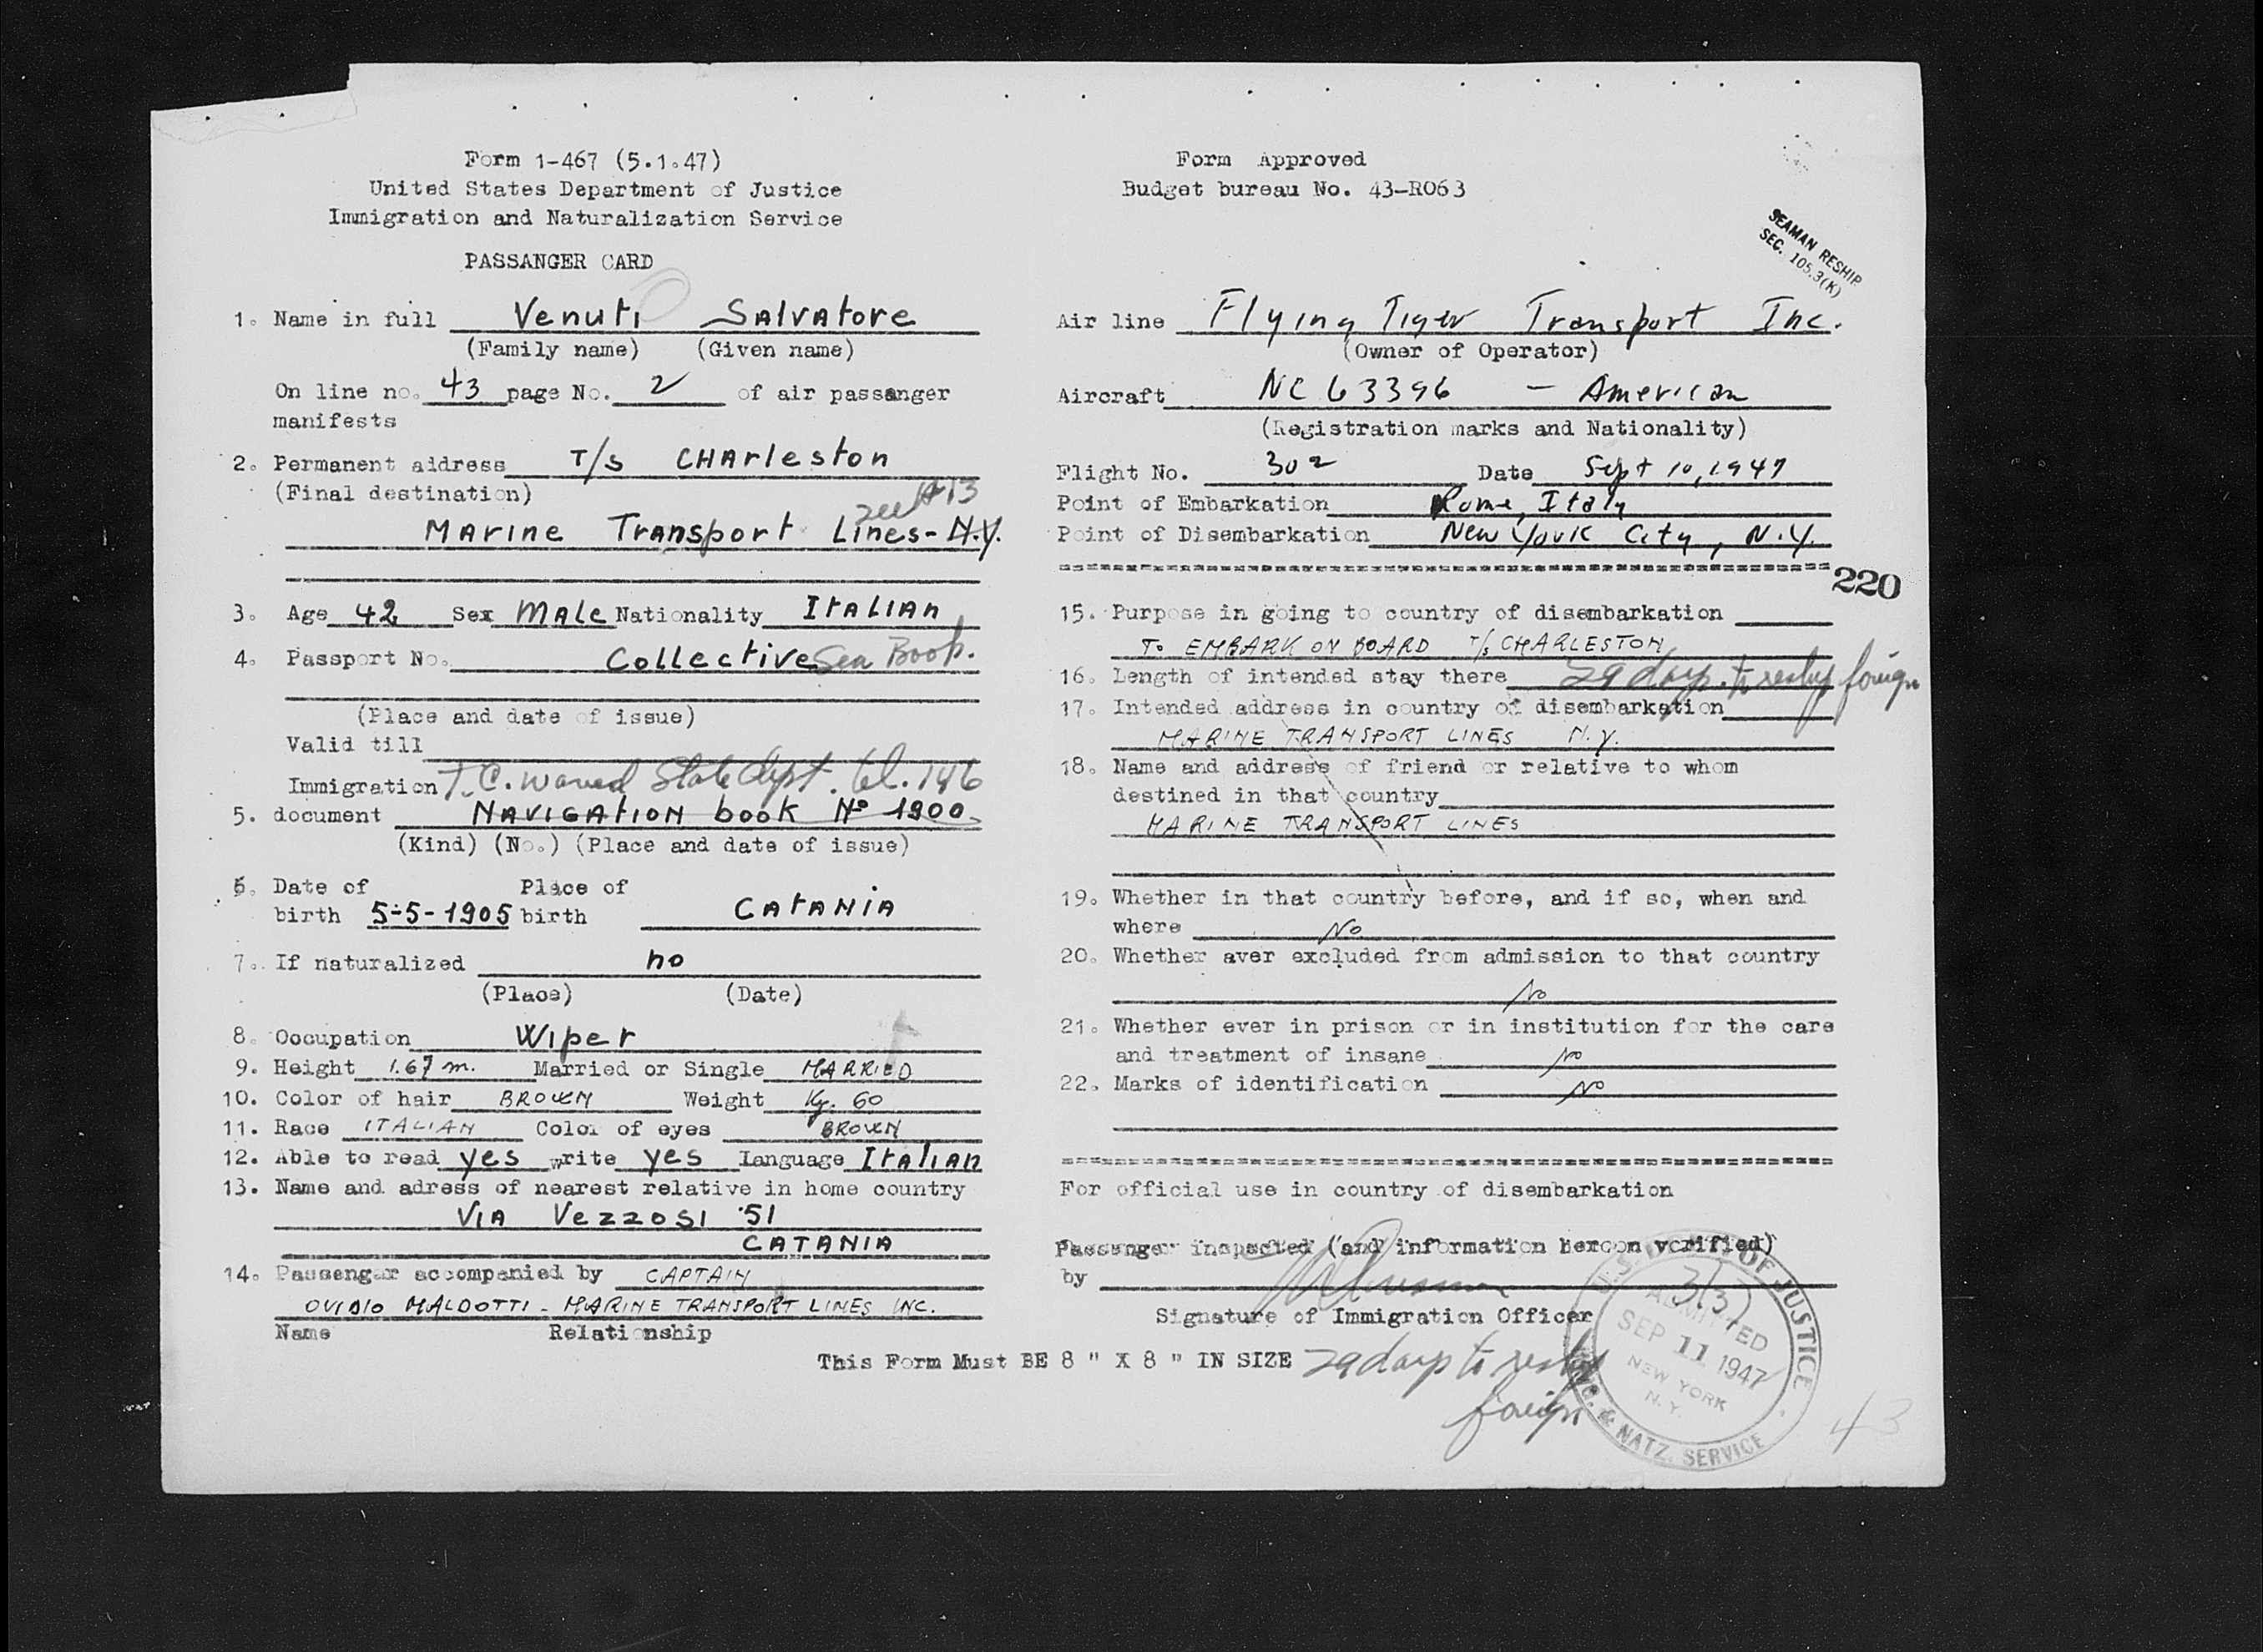 Form 1-467 (5.1.47)
United States Department of Justice
Immigration and Naturalization Service
PASSANGER CARD
1. Name in full Venuti Salvatore
(Family name) (Given name)
On line no. 43 page No. 2 of air passanger
manifests
2. Permanent aidress T/s CHArleston
(Final destination)
see #13
MArine TrAnsport Lines- N.Y.
3. Age 42 Sex MALe Nationality ItALIAn
4. Passport No. Collective Sea Book.
(Place and date of issue)
Valid till
Immigration T.C. waved State dept. tel. 146
5. document NAVIGAtION book Nº 1900.
(Kind) (No.) (Place and date of issue)
6. Date of Place of
birth 5-5-1905 birth CAtANIA
7. If naturalized no
(Place) (Date)
8. Occupation Wiper
9. Height 1.67 m. Married or Single MARRIED
10. Color of hair BROWN Weight Kg. 60
11. Race ITALIAN Color of eyes BROWN
12. Able to read yes write yes language ItALIAn
13. Name and adress of nearest relative in home country
VIA VezzosI 51
CATANIA
14. Passenger accompanied by CAPTAIN
OVIDIO MALDOTTI - MARINE TRANSPORT LINES INC.
Name Relationship
This Form Must BE 8 " X 8 " IN SIZE
Form Approved
Budget bureau No. 43-R063
SEAMAN RESHIP
SEC. 105.3(K)
Air line Flying Tiger Transport Inc.
(Owner of Operator)
Aircraft NC 63396 - American
(Registration marks and Nationality)
Flight No. 302 Date Sept 10, 1947
Point of Embarkation Rome, Italy
Point of Disembarkation New York City, N.Y.
220
15. Purpose in going to country of disembarkation
To EMBARK ON BOARD T/s CHARLESTON
16. Length of intended stay there 29 days to reship foreign
17. Intended address in country of disembarkation
MARINE TRANSPORT LINES N.Y.
18. Name and address of friend or relative to whom
destined in that country
MARINE TRANSPORT LINES
19. Whether in that country before, and if so, when and
where No
20. Whether aver excluded from admission to that country
No
21. Whether ever in prison or in institution for the care
and treatment of insane No
22. Marks of identification No
For official use in country of disembarkation
Passenger inspected (and information hereon verified)
by
Signature of Immigration Officer
29 days to reship
foreign
U.S. DEPT. OF JUSTICE
3(3)
ADMITTED
SEP 11 1947
NEW YORK
N.Y.
& NATZ. SERVICE
43